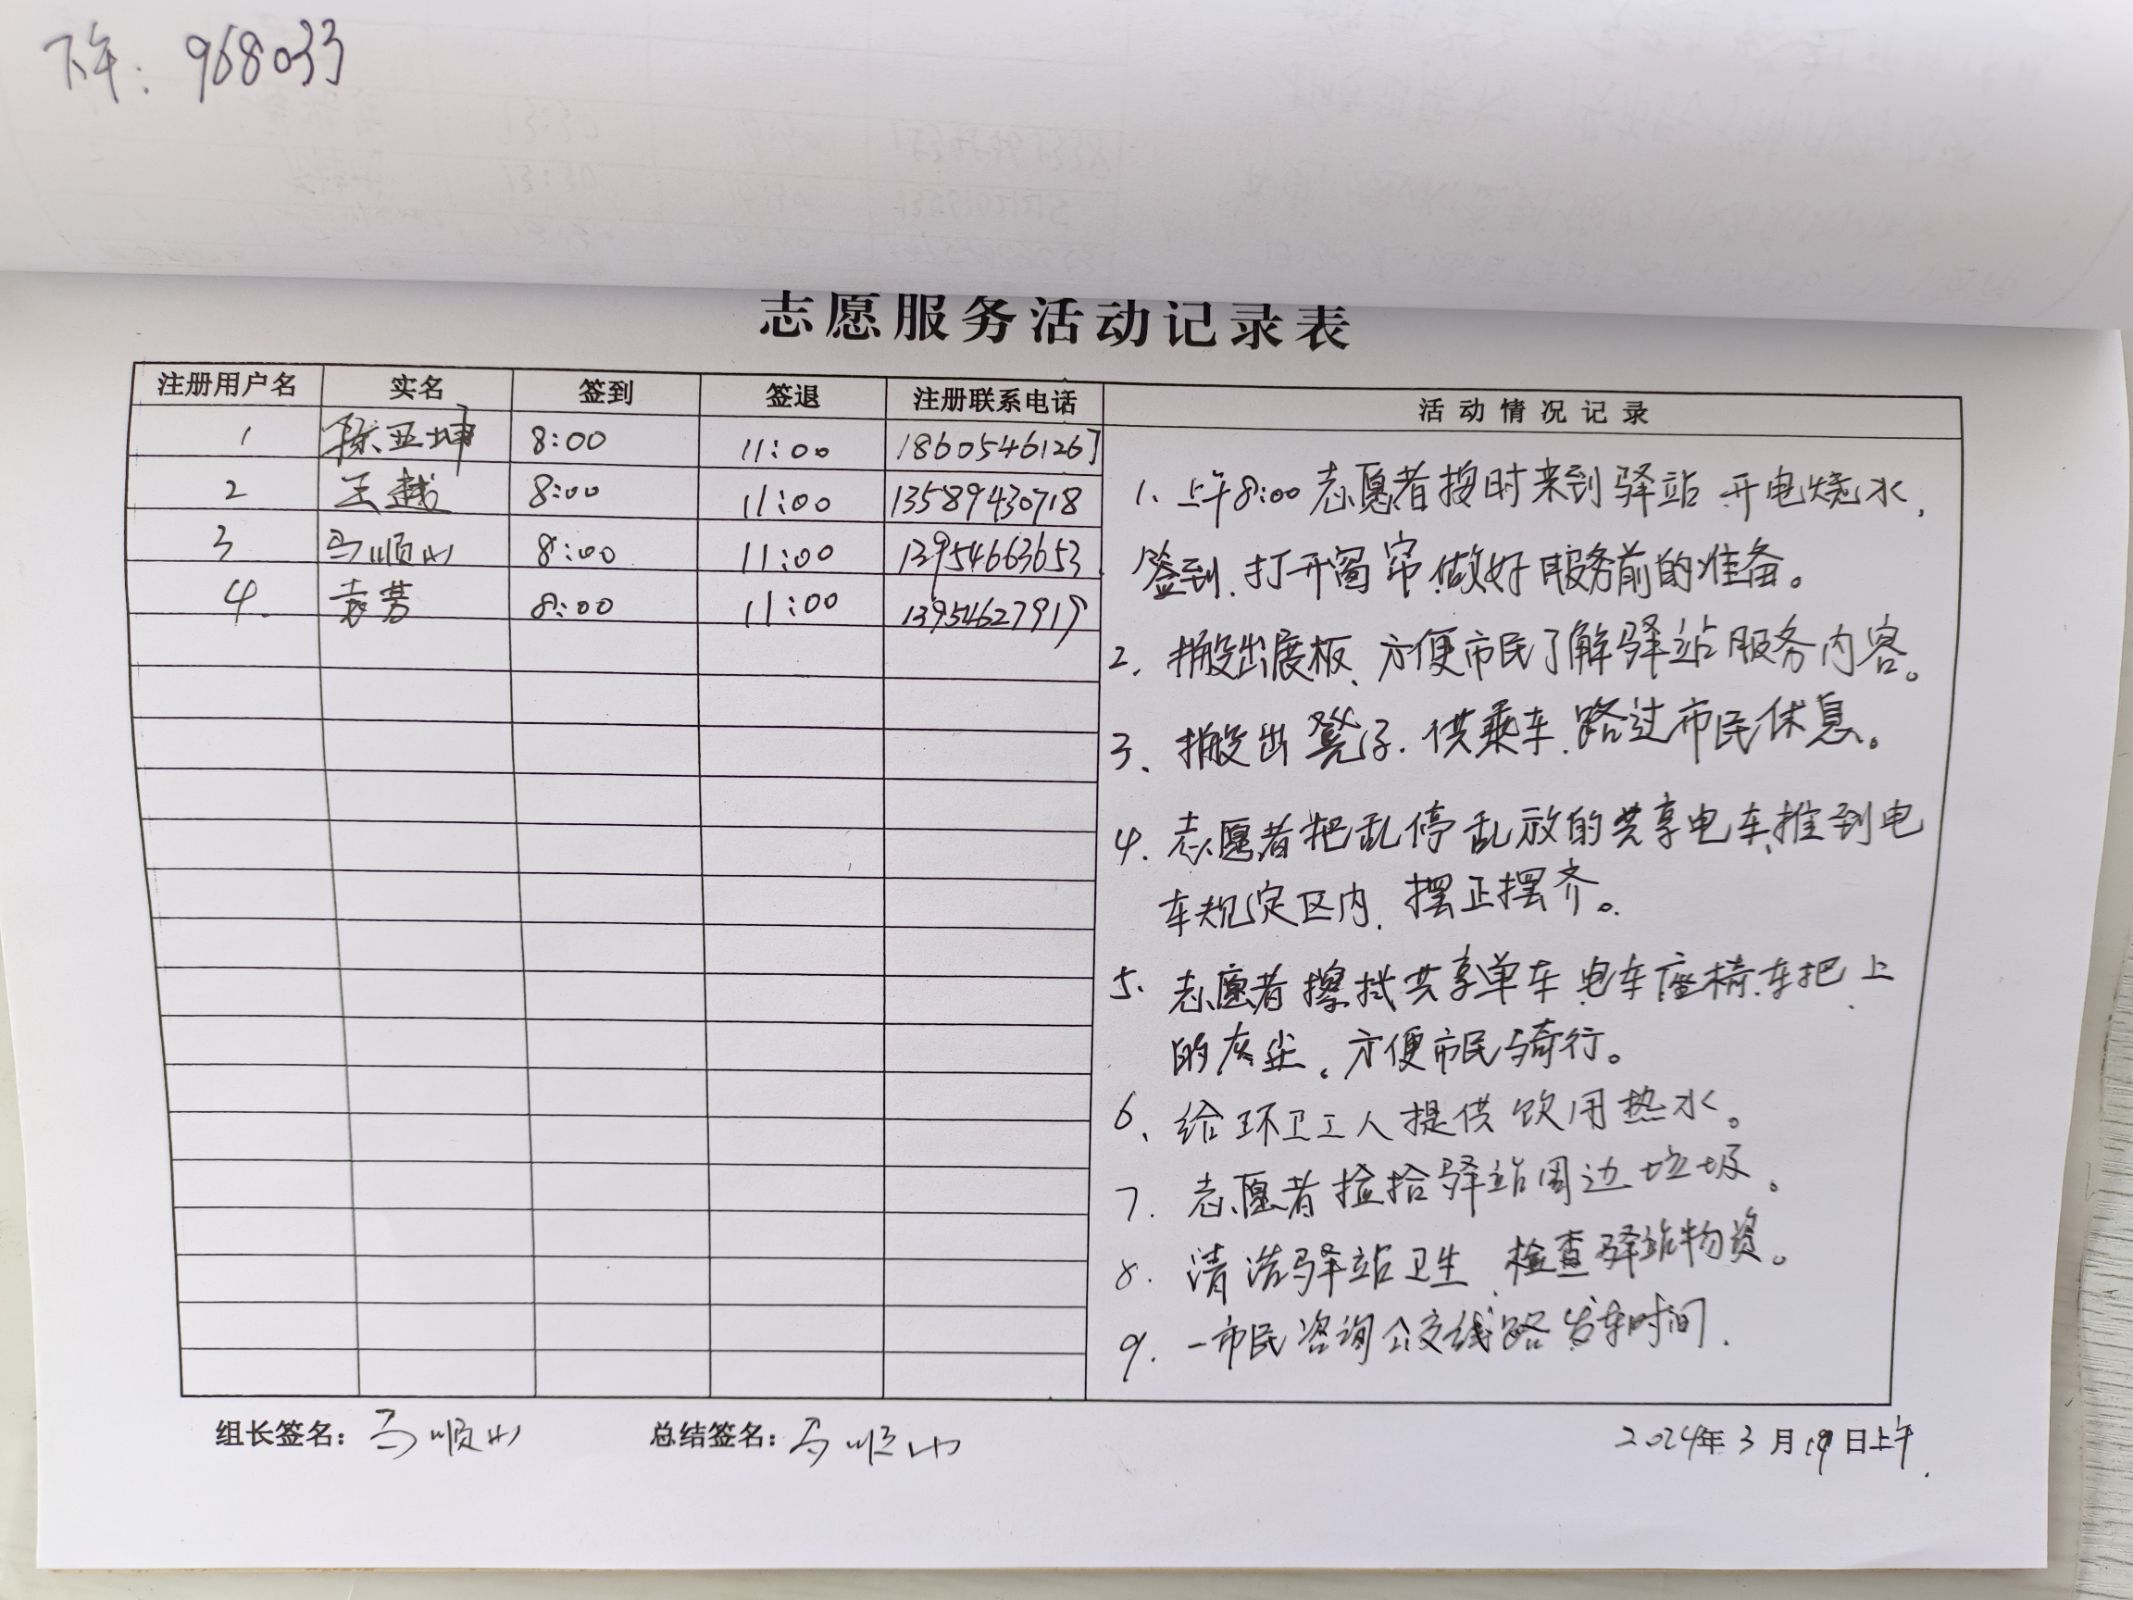 下午：968033
志愿服务活动记录表
注册用户名 实名 签到 签退 注册联系电话 活动情况记录
1 陈亚坤 8:00 11:00 18605461267
2 王越 8:00 11:00 13589430718
3 马顺山 8:00 11:00 13954663653
4. 袁芳 8:00 11:00 13954627919
1、上午8:00志愿者按时来到驿站.开电烧水，
签到.打开窗帘.做好服务前的准备。
2、搬出展板、方便市民了解驿站服务内容。
3、搬出凳子.供乘车.路过市民休息。
4.志愿者把乱停乱放的共享电车推到电
车规定区内.摆正摆齐。
5.志愿者擦拭共享单车.电车座椅.车把上
的灰尘。方便市民骑行。
6、给环卫工人提供饮用热水。
7.志愿者捡拾驿站周边垃圾。
8.清洁驿站卫生.检查驿站物资。
9.一市民咨询公交线路发车时间.
组长签名：马顺山 总结签名：马顺山 2024年3月19日上午.